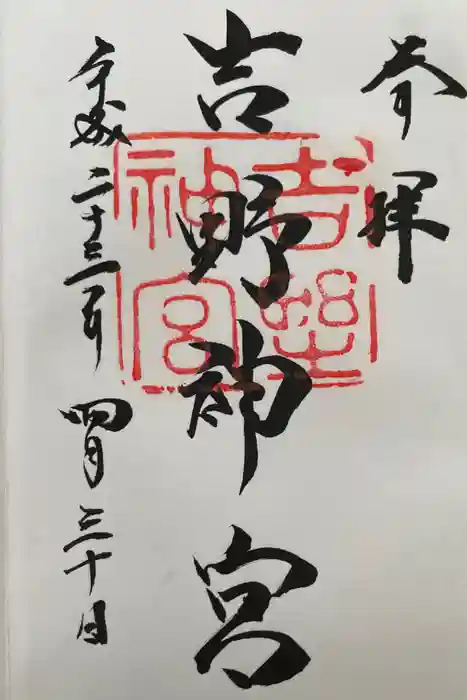 奉拝
吉野神宮
平成二十三年四月三十日
吉野神宮